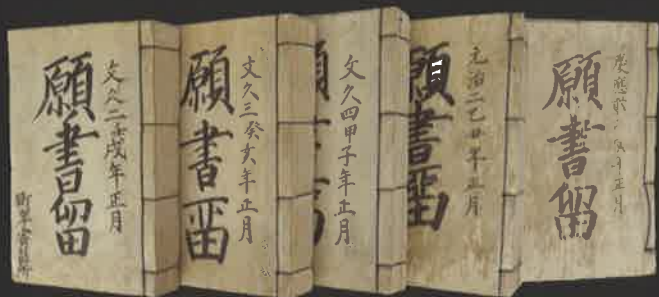 文久二壬戌年正月
願書留
文久三癸亥年正月
願書留
文久四甲子年正月
元治二乙丑年正月
願書留
慶應弐 年正月
願書留